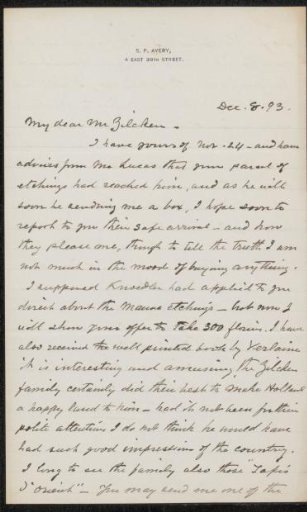 S. P. AVERY,
4 EAST 38TH STREET.
Dec. 8. 93.
My dear Mr Zilcken -
I have yours of Nov. 24 - and have
advices from Mr Lucas that your parcel of
etchings had reached him, and as he will
soon be sending me a box, I hope soon to
report to you their safe arrival - and how
they please me, though to tell the truth I am
not much in the mood of buying anything.
I supposed Knoedler had applied to you
direct about the Mauve etchings - but now I
will show your offer to take 300 florins. I have
also received the well printed book by Verlaine
it is interesting and amusing, the Zilcken
family certainly did their best to make Holland
a happy land to him - had it not been for their
polite attention I do not think he would have
had such good impressions of the country.
I long to see the family also those "Tapis
d'Orient" - You may send me one of the